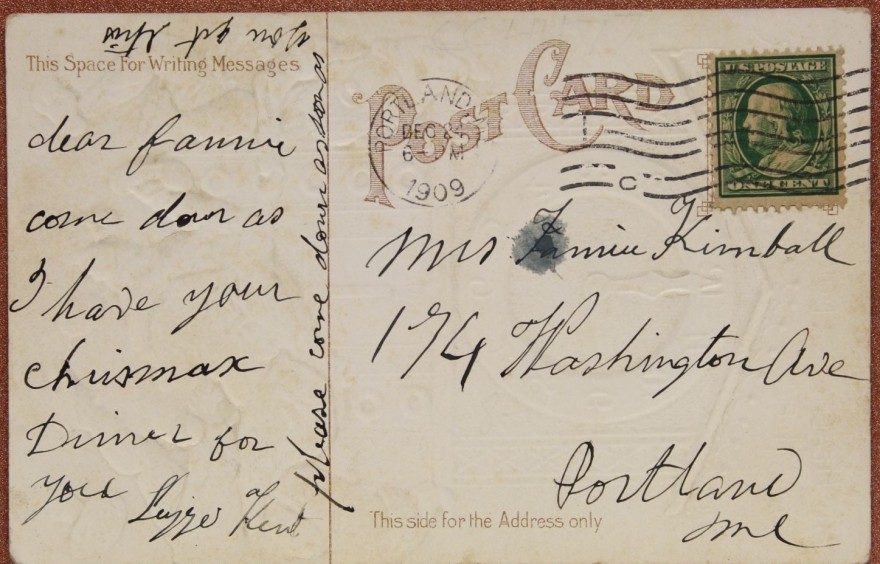 This Space For Writing Messages
dear Fannie
come down as
I have your
Chrismax
Dinner for
you Kent
please come down as soon as
you get this
POST CARD
PORTLAND
DEC 24
6 M
1909
U.S. POSTAGE
ONE CENT
Mrs Fannie Kimball
Washington Ave
Portland
Me
This side for the Address only